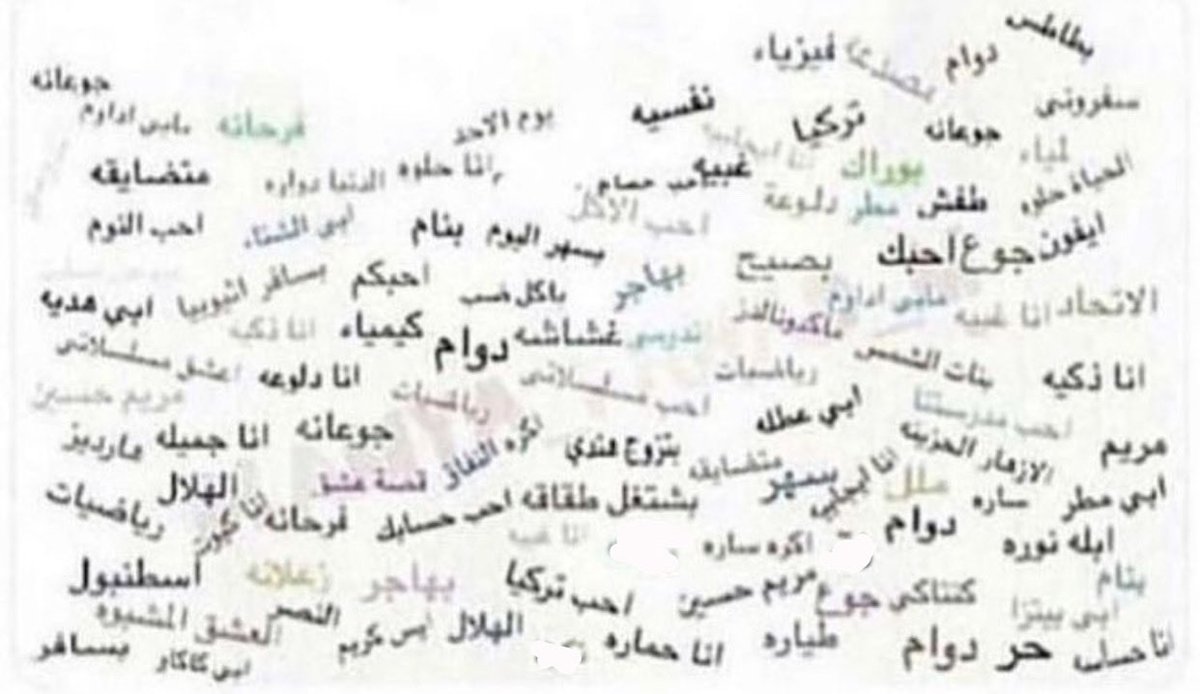 بطاطس
دوام
فيزياء
جوعانه
سفروني
نفسيه
تركيا
جوعانه
يوم الاحد
فرحانه
مابي اداوم
لمياء
بوراك
غبيه
احب حسام
انا حلوه
الدنيا دواره
متضايقه
الحياة حلوه
طفش
مطر
دلوعة
احب الاكل
ايفون
جوع
احبك
بصيح
بسهر اليوم
بنام
ابي الشتاء
احب النوم
بهاجر
باكل
احبكم
بسافر اثيوبيا
ابي هديه
الاتحاد
انا غبيه
مابي اداوم
ماكدونالدز
تدرسي
غشاشه
دوام
كيمياء
انا ذكيه
بنات الشمس
انا ذكيه
رياضيات
احب مسلسلاتي
رياضيات
انا دلوعه
اعشق مسلسلاتي
مريم حسين
احب مدرستنا
ابي عطله
مريم
الازهار الحزينه
بتزوج هندي
اكره التفاح
جوعانه
انا جميله
مارديز
متضايقه
بسهر
ملل
ساره
ابي مطر
بشتغل طقاقه
احب حسابك
قصة عشق
الهلال
فرحانه
رياضيات
دوام
ابله نوره
اكره ساره
انا غبيه
بنام
ابي بيتزا
كنتاكي
جوع
مريم حسين
احب تركيا
بهاجر
زعلانه
اسطنبول
النصر
العشق المشبوه
انا حساسه
حر
دوام
طياره
انا حماره
الهلال
ايس كريم
ابي كاكاو
بسافر